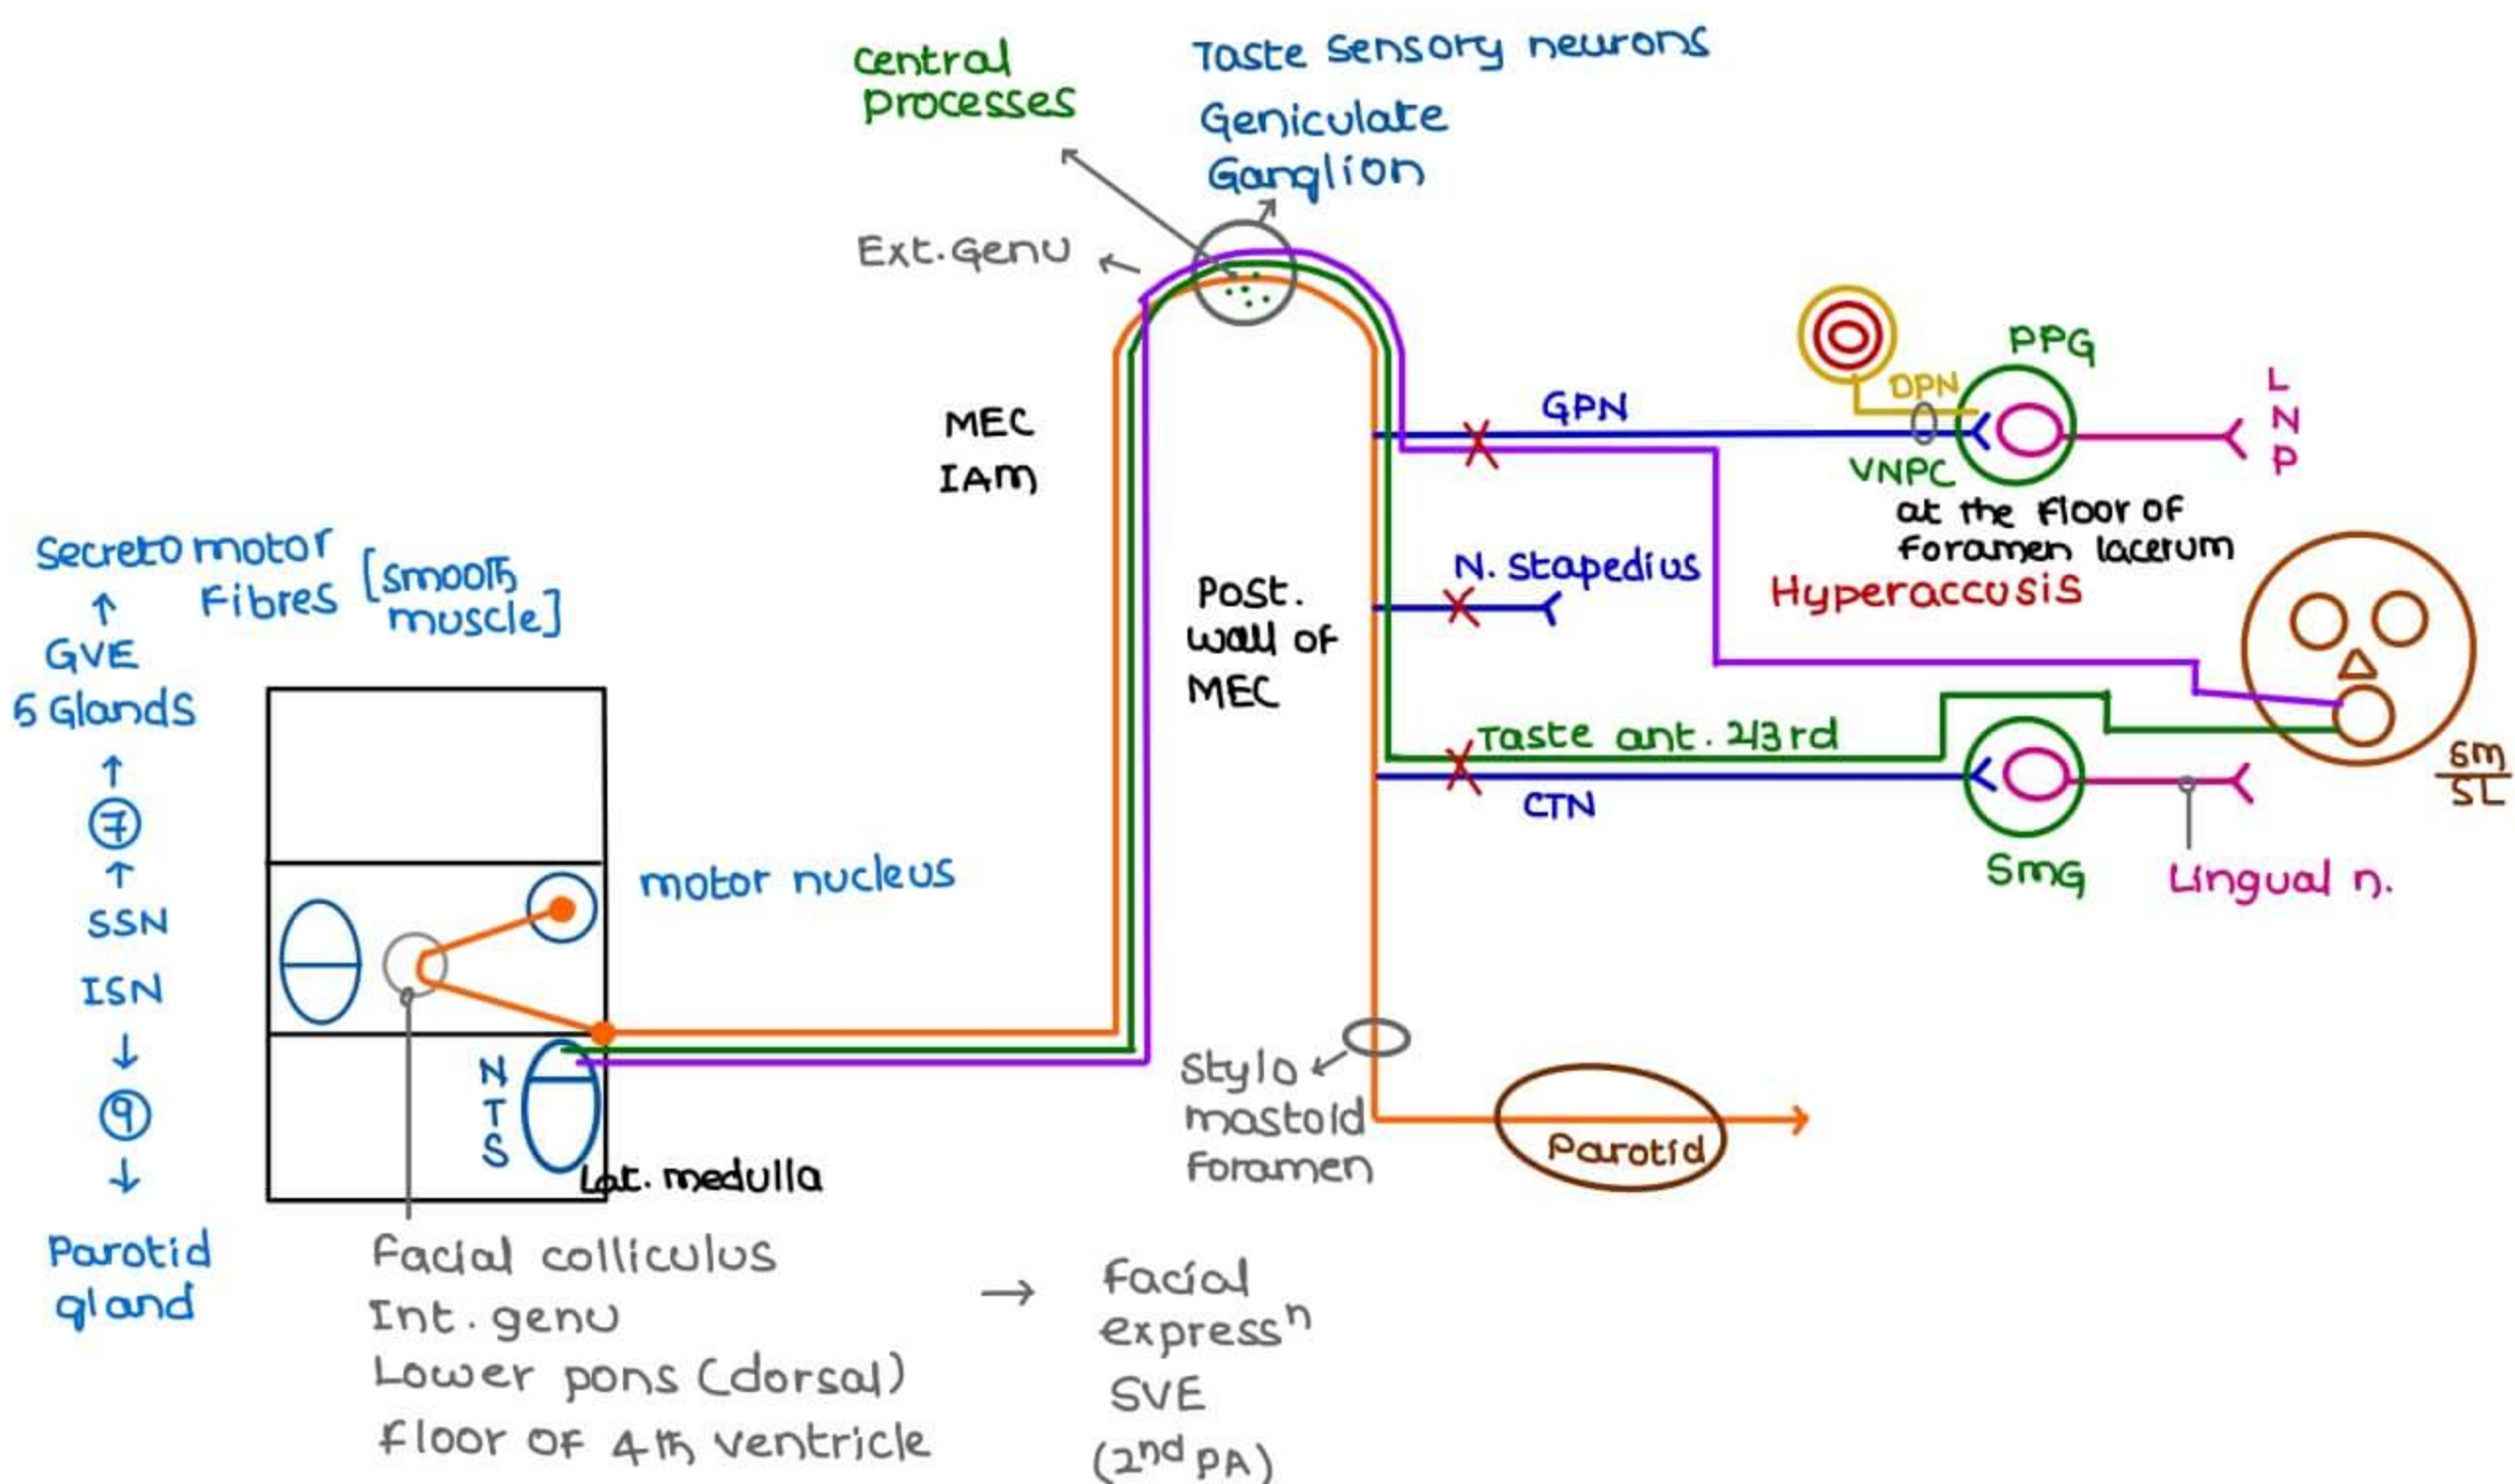 Central
Processes
Taste Sensory neurons
Geniculate
Ganglion
Ext. Genu
MEC
IAM
GPN
DPN
PPG
VNPC
L
N
P
at the floor of
Foramen lacerum
N. Stapedius
Hyperaccusis
Post.
wall of
MEC
Taste ant. 2/3 rd
CTN
SMG
Lingual n.
SM
SL
Secreto motor
Fibres [smooth
muscle]
↑
GVE
5 Glands
↑
7
↑
SSN
ISN
↓
9
↓
Parotid
gland
motor nucleus
N
T
S
Lat. medulla
Stylo
mastoid
Foramen
Parotid
Facial colliculus
Int. genu
Lower pons (dorsal)
Floor of 4th ventricle
→
Facial
expressⁿ
SVE
(2nd PA)